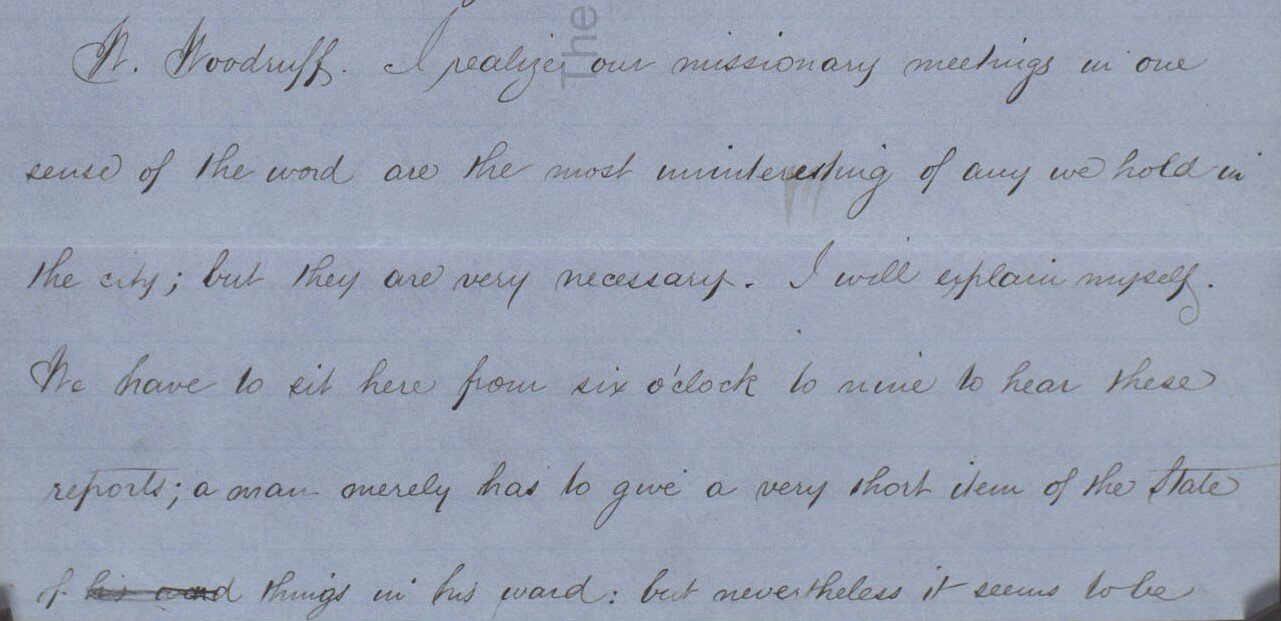 W. Woodruff. I realize our missionary meetings in one
sense of the word are the most uninteresting of any we hold in
the city; but they are very necessary. I will explain myself.
We have to sit here from six o'clock to nine to hear these
reports; a man merely has to give a very short item of the State
of his ward things in his ward: but nevertheless it seems to be
The